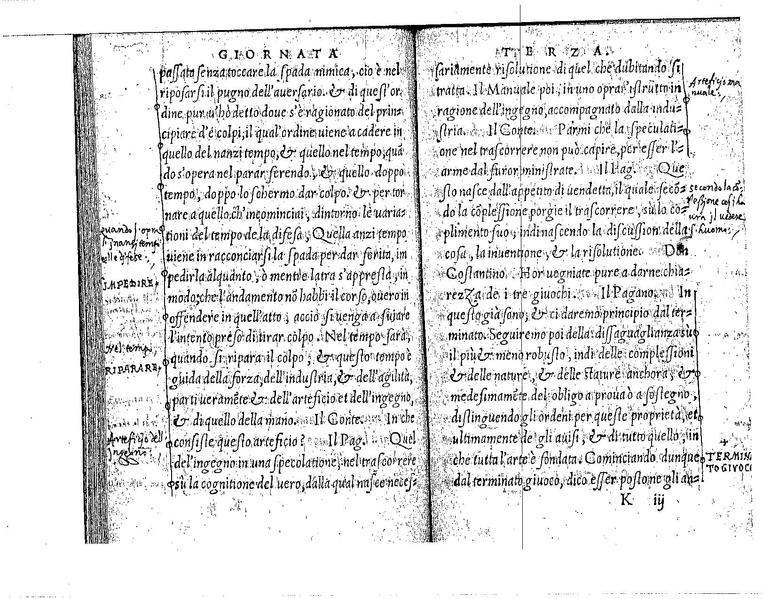 GIORNATA
passata senza toccare la spada nimica, cio è nel
riposarsi il pugno dell'auersario. & di quest'or
dine pur u'hò detto doue s'è ragionato del prin
cipiare d'è colpi, il qual'ordine uiene a cadere in
quello del nanzi tempo, & quello nel tempo, quã
do s'opera nel parar ferendo, & quello doppo
tempo, doppo lo schermo dar colpo. & per tor
nare a quello ch'incominciai, dintorno le uaria=
tioni del tempo de la difesa, Quella anzi tempo
uiene in racconciarsi la spada per dar ferita, im
pedirla alquanto, ò mentre laltra s'appresta, in
modo che l'andamento nõ habbi il corso, quero in
offendere in quell'atto, acciò si uenga a suiare
l'intento preso di tirar colpo. Nel tempo sarà,
quando si ripara il colpo, & questo tempo è
guida della forza, dell'industria, & dell'agilità,
parti ueramẽte & dell'arteficio et dell'ingegno,
& di quello della mano. Il Conte. In che
consiste questo arteficio? Il Pag. Quel
del'ingegno in una speculatione, nel trascorrere
sù la cognitione del uero, dalla qual nasce neces=
quando
IMPEDIRE,
Nel tempo
RIPARARE,
Arteficio dell
TERZA.
sariamente risolutione di quel che dubitando si
tratta. Il Manuale poi, in uno oprar istrutto in
ragione dell'ingegno, accompagnato dalla indu=
stria. Il Conte. Parmi che la speculati=
one nel trascorrere non può capire, per esser l'=
arme dal furor ministrate. Il Pag. Que
sto nasce dall'appetito di uendetta, il quale secõ=
do la cõplessione porgie il trascorrere, su lo co=
plimento suo, indi nascendo la discussion della
cosa, la inuentione, & la risolutione. Don
Costantino. Hor uogniate pure a darne chia=
rezza de i tre giuochi. Il Pagano. In
questo già sono, & ci daremo principio dal ter=
minato. Seguiremo poi della dissaguaglianza sù
il più & meno robusto, indi delle complessioni
& delle nature, & delle stature anchora, &
medesimamẽte del obligo a proua ò a sostegno,
distinguendo gli ordeni per queste proprietà, et
ultimamente de gli auisi, & di tutto quello, in
che tutta l'arte è fondata. Cominciando dunque
dal terminato giuoco, dico esser posto ne gli an=
K iij
Arteficio ma
nuale.
secondo la Cõ
l'huomo:
TERMINA
TO GIVOCO